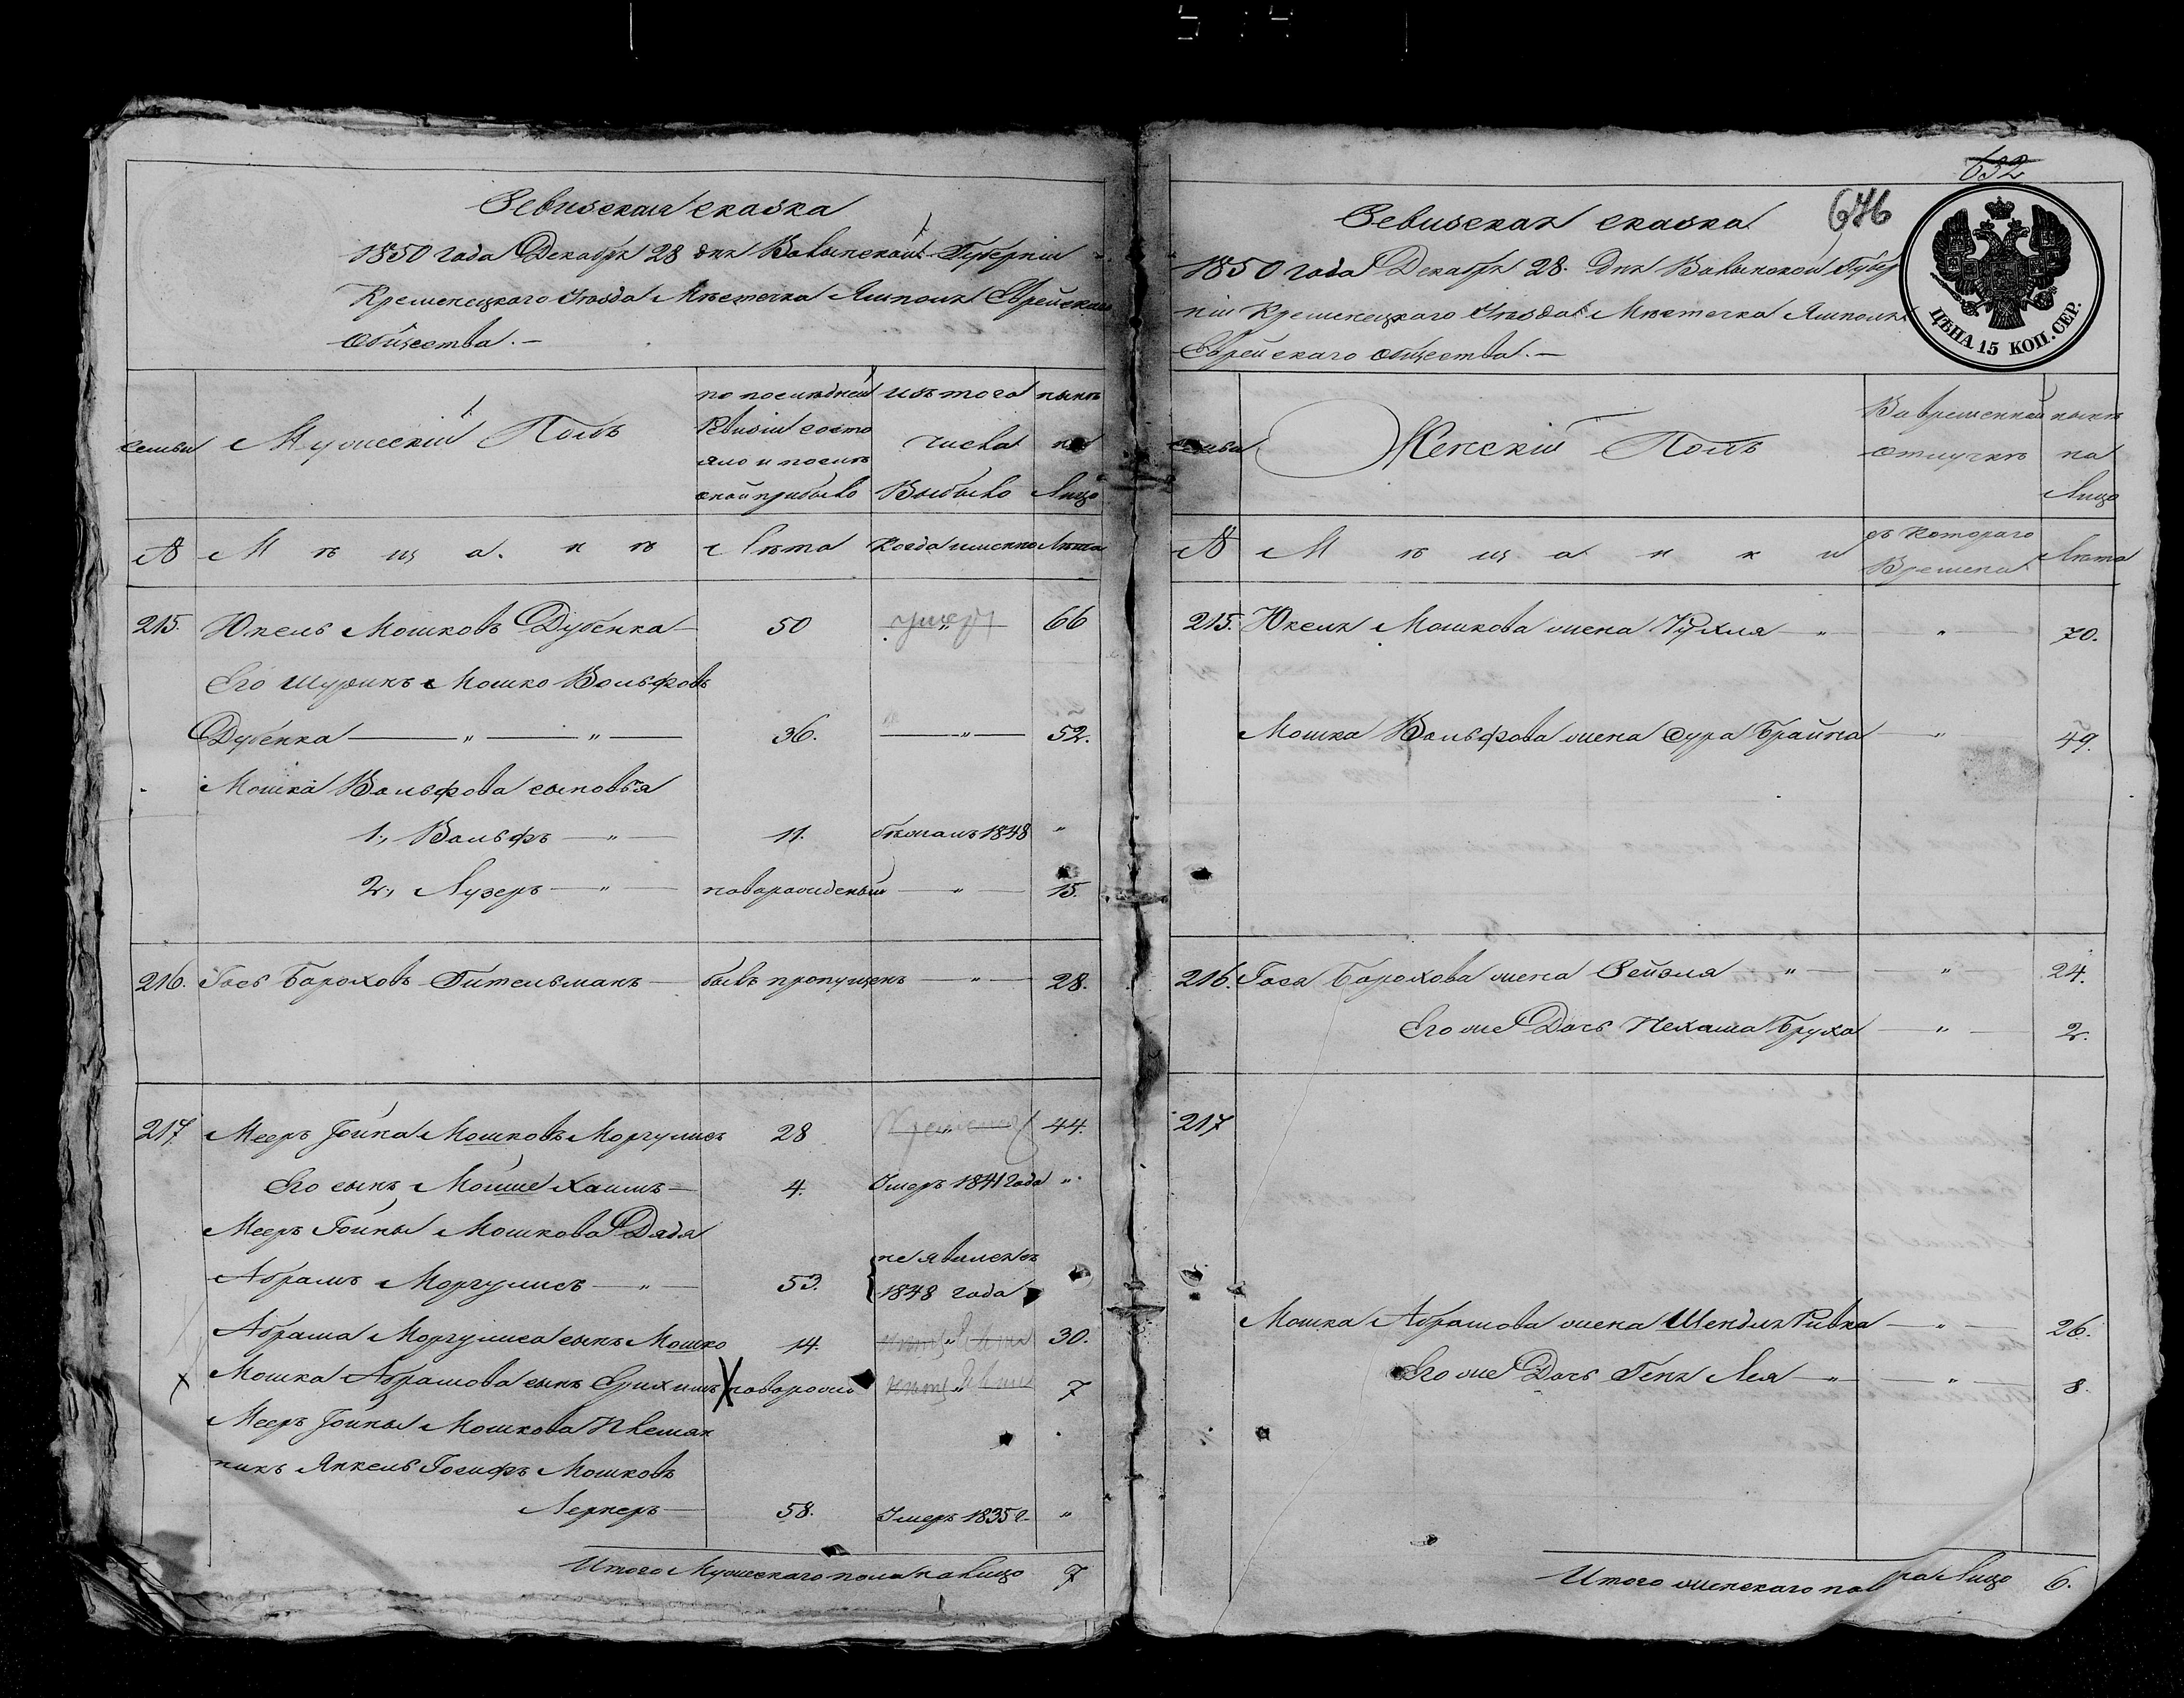 Ревизская сказка
1850 года Декабря 28 дня Волынской Губернии
Кременецкаго Уезда Местечка Ямполя Еврейскаго
Общества. —
семьи
Мужеский Полъ
по последней
Ревизии состо
яло и после
оной прибыло
изъ того
числа
Выбыло
ныне
на
Лицо
№
М ѣ щ а н ѣ
Лѣта
Когда именно
Лѣта
215. Юкель Мошковъ Дубенка 50 66
Его Шуринъ Мошко Вольфовъ
Дубенка — " — " — 36. — " — 52.
Мошка Вольфова сыновья
1., Вольфъ — " — 11. бежалъ 1848 "
2., Лузеръ — " — новорожденый — " — 15.
216. Гось Бороховъ Гительманъ — былъ пропущенъ — " — 28.
217. Мееръ Іойна Мошковъ Моргулисъ 28 44.
Его сынъ Мойше Хаимъ — 4. Умеръ 1841 года "
Мееръ Іойны Мошкова Дядя
Абрамъ Моргулисъ — " — 53. неявился съ
1848 года
Абрама Моргулиса сынъ Мошко 14. 30.
Мошка Абрамова сынъ Срихимъ новорож 7
Мееръ Іойны Мошкова Племян
никъ Янкель Іосифъ Мошковъ
Лернеръ — 58. Умеръ 1835 г. "
Итого Мужескаго пола на Лицо 7
632
646
Ревизская сказка
1850 года Декабря 28. Дня Волынской Губер
нии Кременецкаго Уезда Местечка Ямполя
Еврейскаго Общества. —
ЦѢНА 15 КОП. СЕР.
семьи
Женский Полъ
Во временной
отлучке
ныне
на
Лицо
№
М ѣ щ а н к и
съ Котораго
Времени
Лѣта
215. Юкеля Мошкова жена Рухля — " — " — 70.
Мошка Вольфова жена Сура Брайна — " — 49.
216. Гося Борохова жена Рейзля " — " — 24.
Его же Дочь Нехама Бруха — " — 2.
217
Мошка Абрамова жена Шендля Ривка — " — 26.
Его же Дочь Геня Лея — " — " — 8.
Итого женскаго пол на Лицо 6.